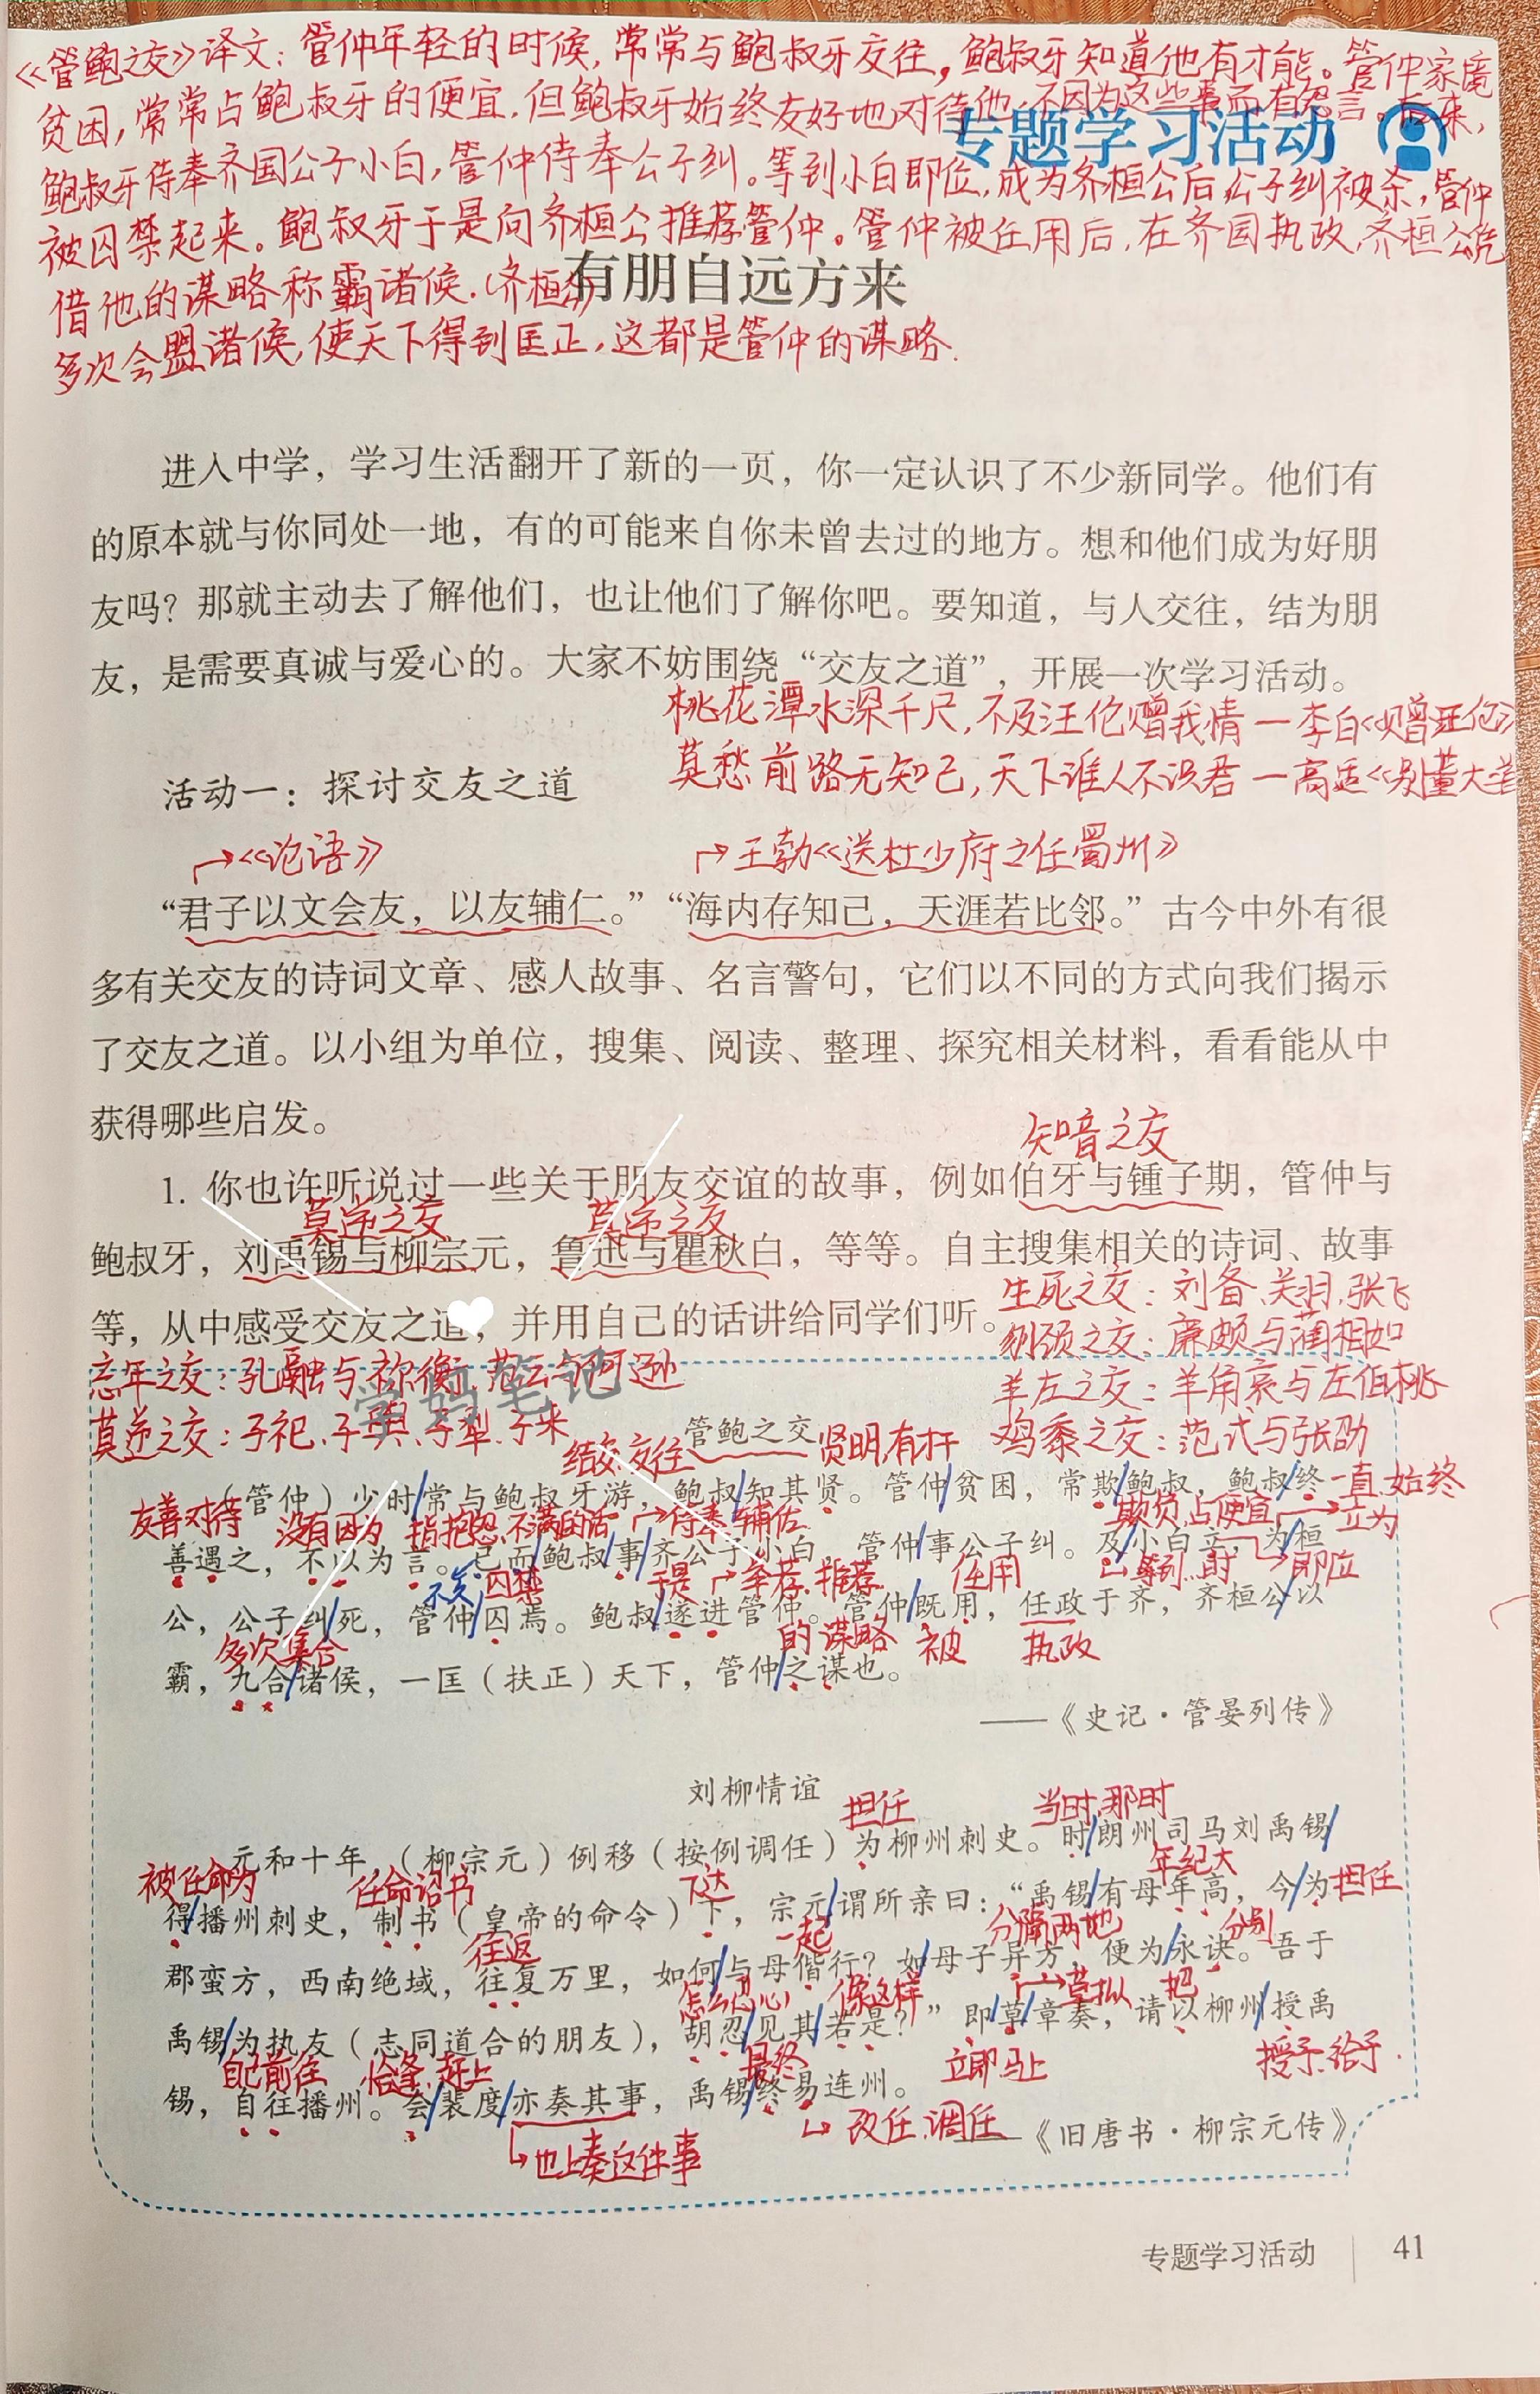 《管鲍之交》译文：管仲年轻的时候，常常与鲍叔牙交往，鲍叔牙知道他有才能。管仲家境
贫困，常常占鲍叔牙的便宜，但鲍叔牙始终友好地对待他，不因为这些事而有怨言。后来，
专题学习活动
鲍叔牙侍奉齐国公子小白，管仲侍奉公子纠。等到小白即位，成为齐桓公后，公子纠被杀，管仲
被囚禁起来。鲍叔牙于是向齐桓公推荐管仲。管仲被任用后，在齐国执政，齐桓公凭
借他的谋略称霸诸候.（齐桓公）
有朋自远方来
多次会盟诸候，使天下得到匡正，这都是管仲的谋略.
进入中学，学习生活翻开了新的一页，你一定认识了不少新同学。他们有
的原本就与你同处一地，有的可能来自你未曾去过的地方。想和他们成为好朋
友吗？那就主动去了解他们，也让他们了解你吧。要知道，与人交往，结为朋
友，是需要真诚与爱心的。大家不妨围绕“交友之道”，开展一次学习活动。
桃花潭水深千尺，不及汪伦赠我情—李白《赠汪伦》
莫愁前路无知己，天下谁人不识君—高适《别董大
活动一：探讨交友之道
→《论语》
→王勃《送杜少府之任蜀州》
“君子以文会友，以友辅仁。”“海内存知己，天涯若比邻。”古今中外有很
多有关交友的诗词文章、感人故事、名言警句，它们以不同的方式向我们揭示
了交友之道。以小组为单位，搜集、阅读、整理、探究相关材料，看看能从中
获得哪些启发。
知音之交
1. 你也许听说过一些关于朋友交谊的故事，例如伯牙与锺子期，管仲与
莫逆之交 莫逆之交
鲍叔牙，刘禹锡与柳宗元，鲁迅与瞿秋白，等等。自主搜集相关的诗词、故事
生死之交：刘备、关羽、张飞
等，从中感受交友之道，并用自己的话讲给同学们听。
刎颈之交：廉颇与蔺相如
忘年之交：孔融与祢衡、范云与何逊
学妈笔记
羊左之交：羊角哀与左伯桃
莫逆之交：子祀、子舆、子犁、子来
鸡黍之交：范式与张劭
管鲍之交
结交、交往 贤明，有才
（管仲）少时常与鲍叔牙游，鲍叔知其贤。管仲贫困，常欺鲍叔，鲍叔终
一直、始终
友善对待 没有因为 指抱怨、不满的话 →侍奉、辅佐 欺负，占便宜 →立为
善遇之，不以为言。已而鲍叔事齐公子小白，管仲事公子纠。及小白立，为桓
不久 囚禁 于是 →举荐、推荐 任用 等到…时 即位
公，公子纠死，管仲囚焉。鲍叔遂进管仲。管仲既用，任政于齐，齐桓公以
多次集合 的谋略 被 执政
霸，九合诸侯，一匡（扶正）天下，管仲之谋也。
——《史记·管晏列传》
刘柳情谊
担任 当时、那时
元和十年，（柳宗元）例移（按例调任）为柳州刺史。时朗州司马刘禹锡
被任命为 任命诏书 下达 年纪大 担任
得播州刺史，制书（皇帝的命令）下，宗元谓所亲曰：“禹锡有母年高，今为
往返 一起 分隔两地 分别
郡蛮方，西南绝域，往复万里，如何与母偕行？如母子异方，便为永诀。吾于
怎么忍心 像这样 →草拟 把
禹锡为执友（志同道合的朋友），胡忍见其若是？”即草章奏，请以柳州授禹
自己前往 恰逢、赶上 最终 立即、马上 授予、给予.
锡，自往播州。会裴度亦奏其事，禹锡终易连州。
改任、调任
——《旧唐书·柳宗元传》
也上奏这件事
专题学习活动 41